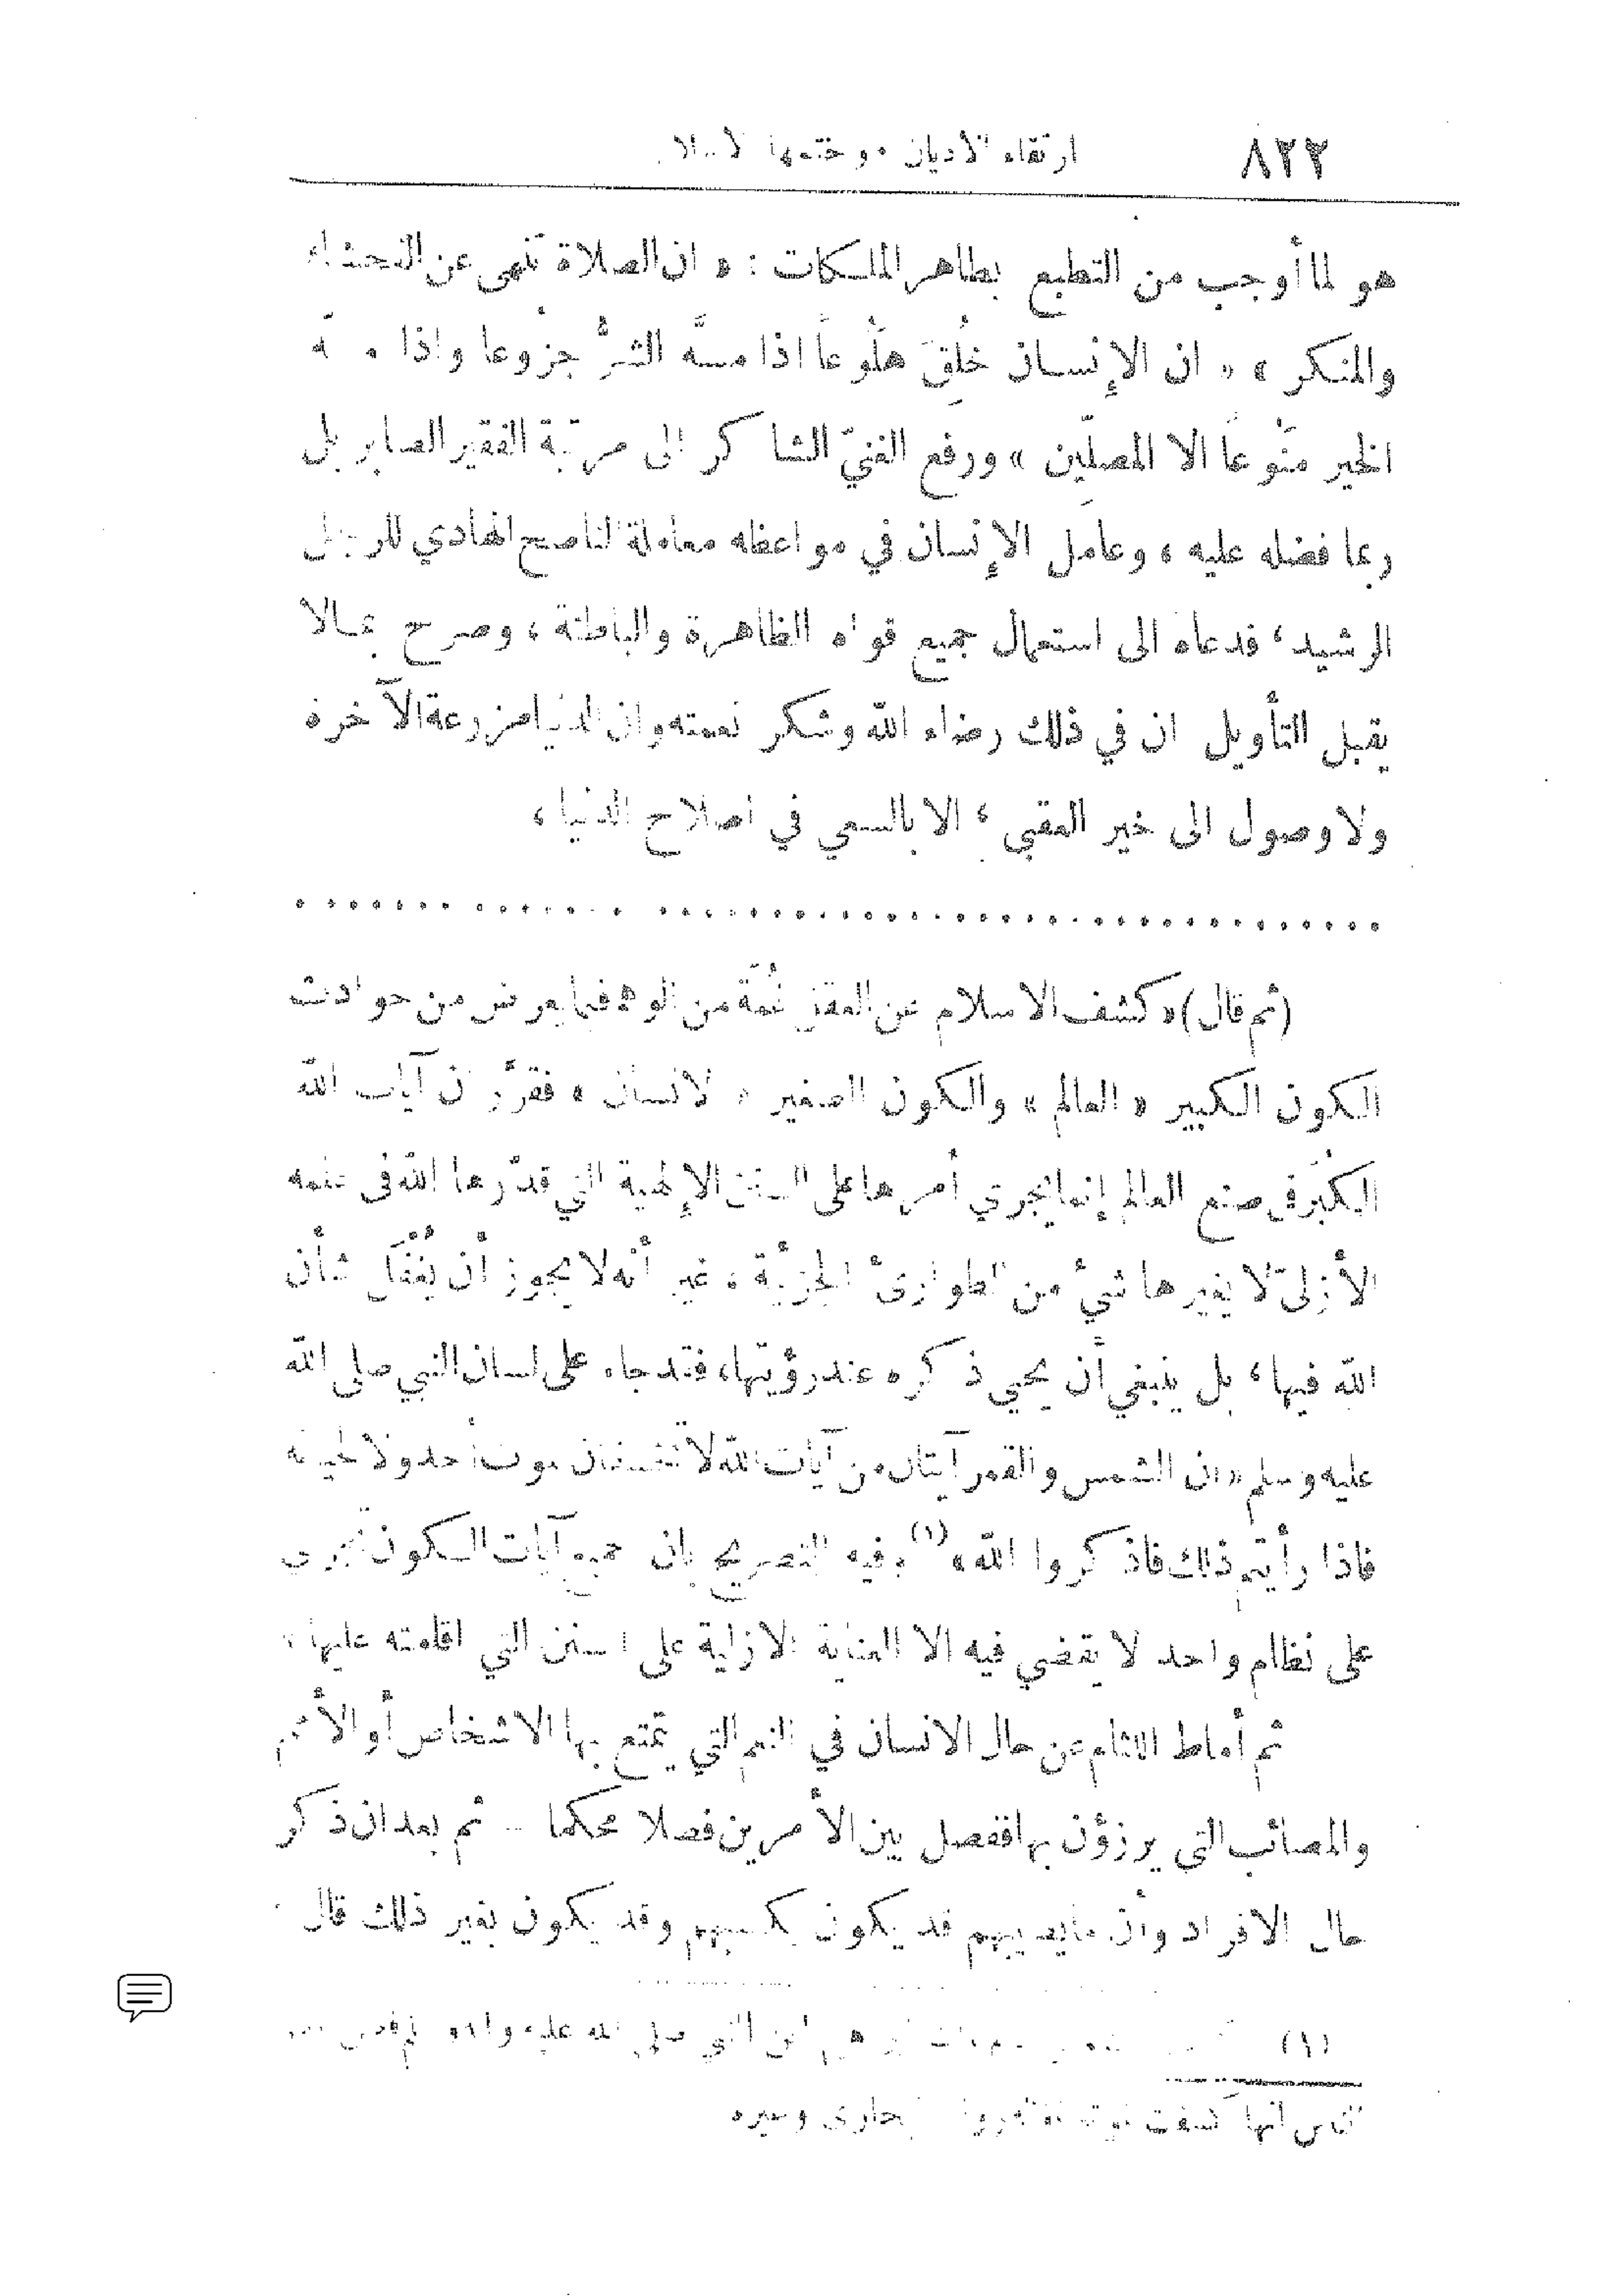 ٨٢٢ ارتقاء الاديان وختمها
هو لما أوجب من التطبع بطاهر الملكات : « ان الصلاة تنهى عن الفحشاء
والمنكر » « ان الإنسان خُلِقَ هلُوعاً اذا مسَّه الشرُّ جزُوعا واذا
الخير منُوعاً الا المصلّين » ورفع الغنيّ الشاكر الى مرتبة الفقير الصابر بل
ربما فضله عليه ، وعامل الإنسان في مواعظه معاملة الناصح الهادي للرجل
الرشيد ، فدعاه الى استعمال جميع قواه الظاهرة والباطنة ، وصرح بمالا
يقبل التأويل ان في ذلك رضاء الله وشكر نعمته وان الدنيا مزرعة الآخرة
ولا وصول الى خير العقبى ، الا بالسعي في اصلاح الدنيا ،
. . . . . . . . . . . . . . . . . . . . . . . . . . . . . . . . . . . . . . . . . . . .
(ثم قال) « كشف الاسلام عن العقل غُمَّة من الوهم فيما يعرض من حوادث
الكون الكبير « العالم » والكون الصغير « الانسان » فقرَّر ان آيات الله
الكبرى في صنع العالم إنما يجري أمرها على السنن الإلهية التي قدّرها الله فى علمه
الأزليّ لا يغيرها شيء من الطوارئ الجزئيَّة ، غير أنه لا يجوز أن يُغْفَل شأن
الله فيها ، بل ينبغي أن يحيي ذكره عند رؤيتها ، فقد جاء على لسان النبي صلى الله
عليه وسلم « ان الشمس والقمر آيتان من آيات الله لا تخسفان لموت أحد ولا لحياته
فاذا رأيتم ذلك فاذكروا الله » (١) وفيه التصريح بان جميع آيات الكون تجري
على نظام واحد لا يقضي فيه الا العناية الازلية على السنن التي اقامته عليها ،
ثم أماط اللثام عن حال الانسان في النعم التي يتمتع بها الاشخاص أو الأمم
والمصائب التي يرزؤن بها ففصل بين الأمرين فصلا محكما - ثم بعد ان ذكر
حال الافراد وأن ما يصيبهم قد يكون بكسبهم وقد يكون بغير ذلك قال
(١) ابن النبي صلى الله عليه وآله
الناس انها كسفت لموته البخارى وغيره